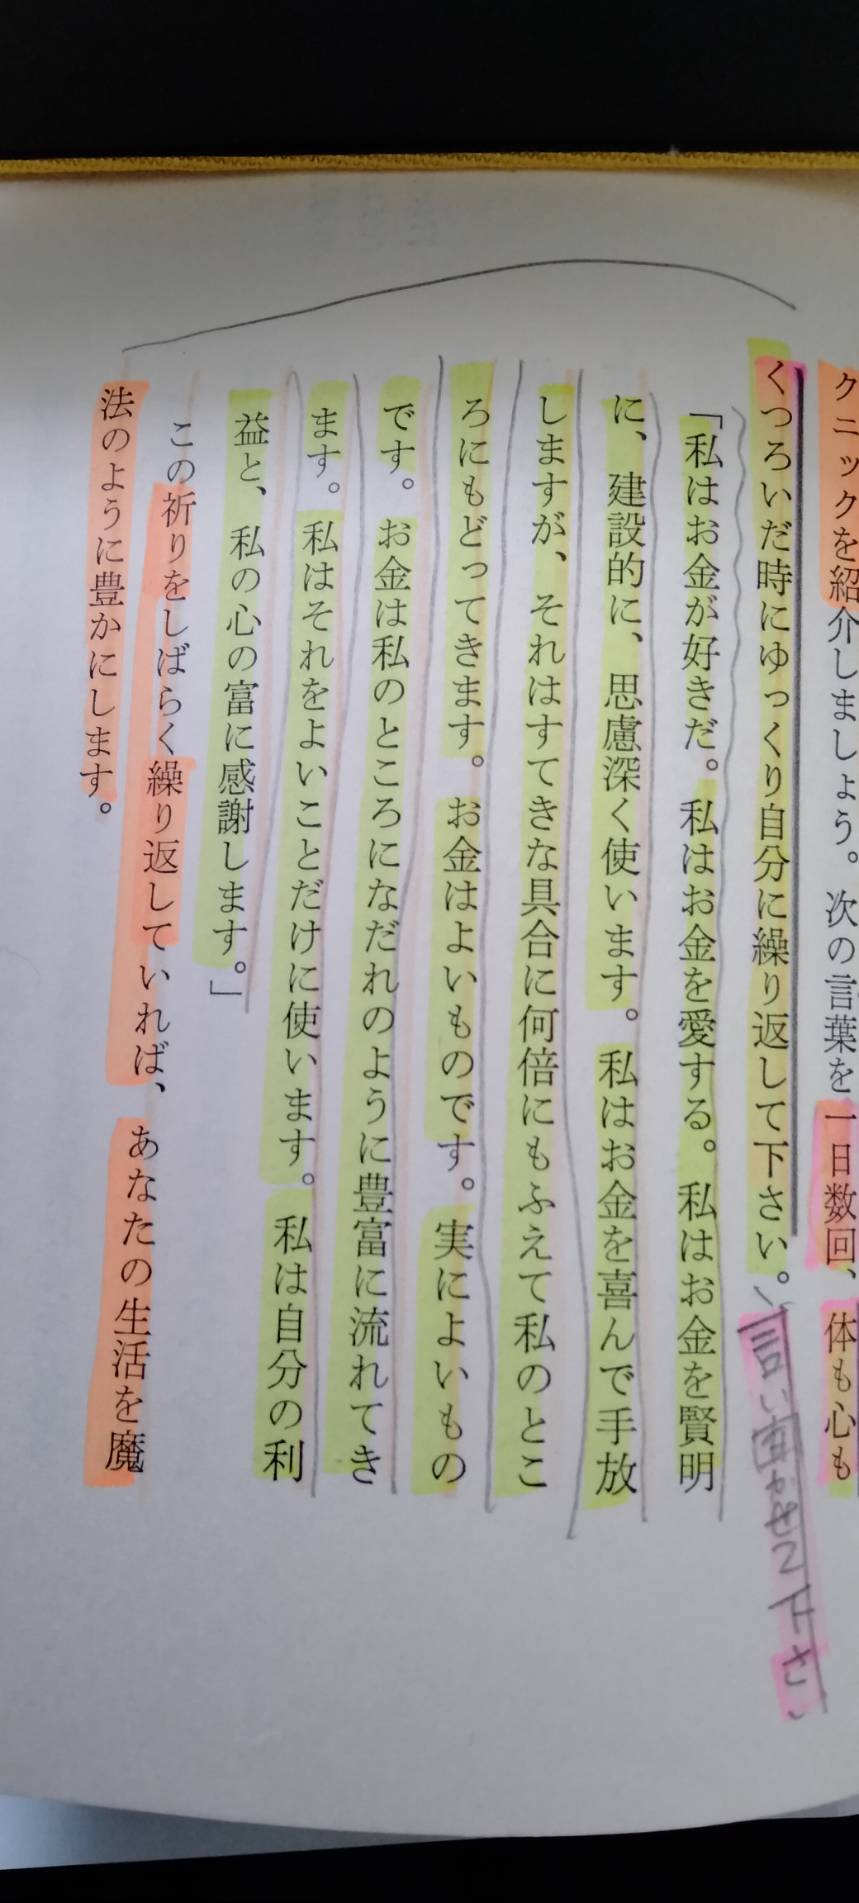 クニックを紹介しましょう。次の言葉を一日数回、体も心も
くつろいだ時にゆっくり自分に繰り返して下さい。
言い聞かせて下さい
「私はお金が好きだ。私はお金を愛する。私はお金を賢明
に、建設的に、思慮深く使います。私はお金を喜んで手放
しますが、それはすてきな具合に何倍にもふえて私のとこ
ろにもどってきます。お金はよいものです。実によいもの
です。お金は私のところになだれのように豊富に流れてき
ます。私はそれをよいことだけに使います。私は自分の利
益と、私の心の富に感謝します。」
この祈りをしばらく繰り返していれば、あなたの生活を魔
法のように豊かにします。